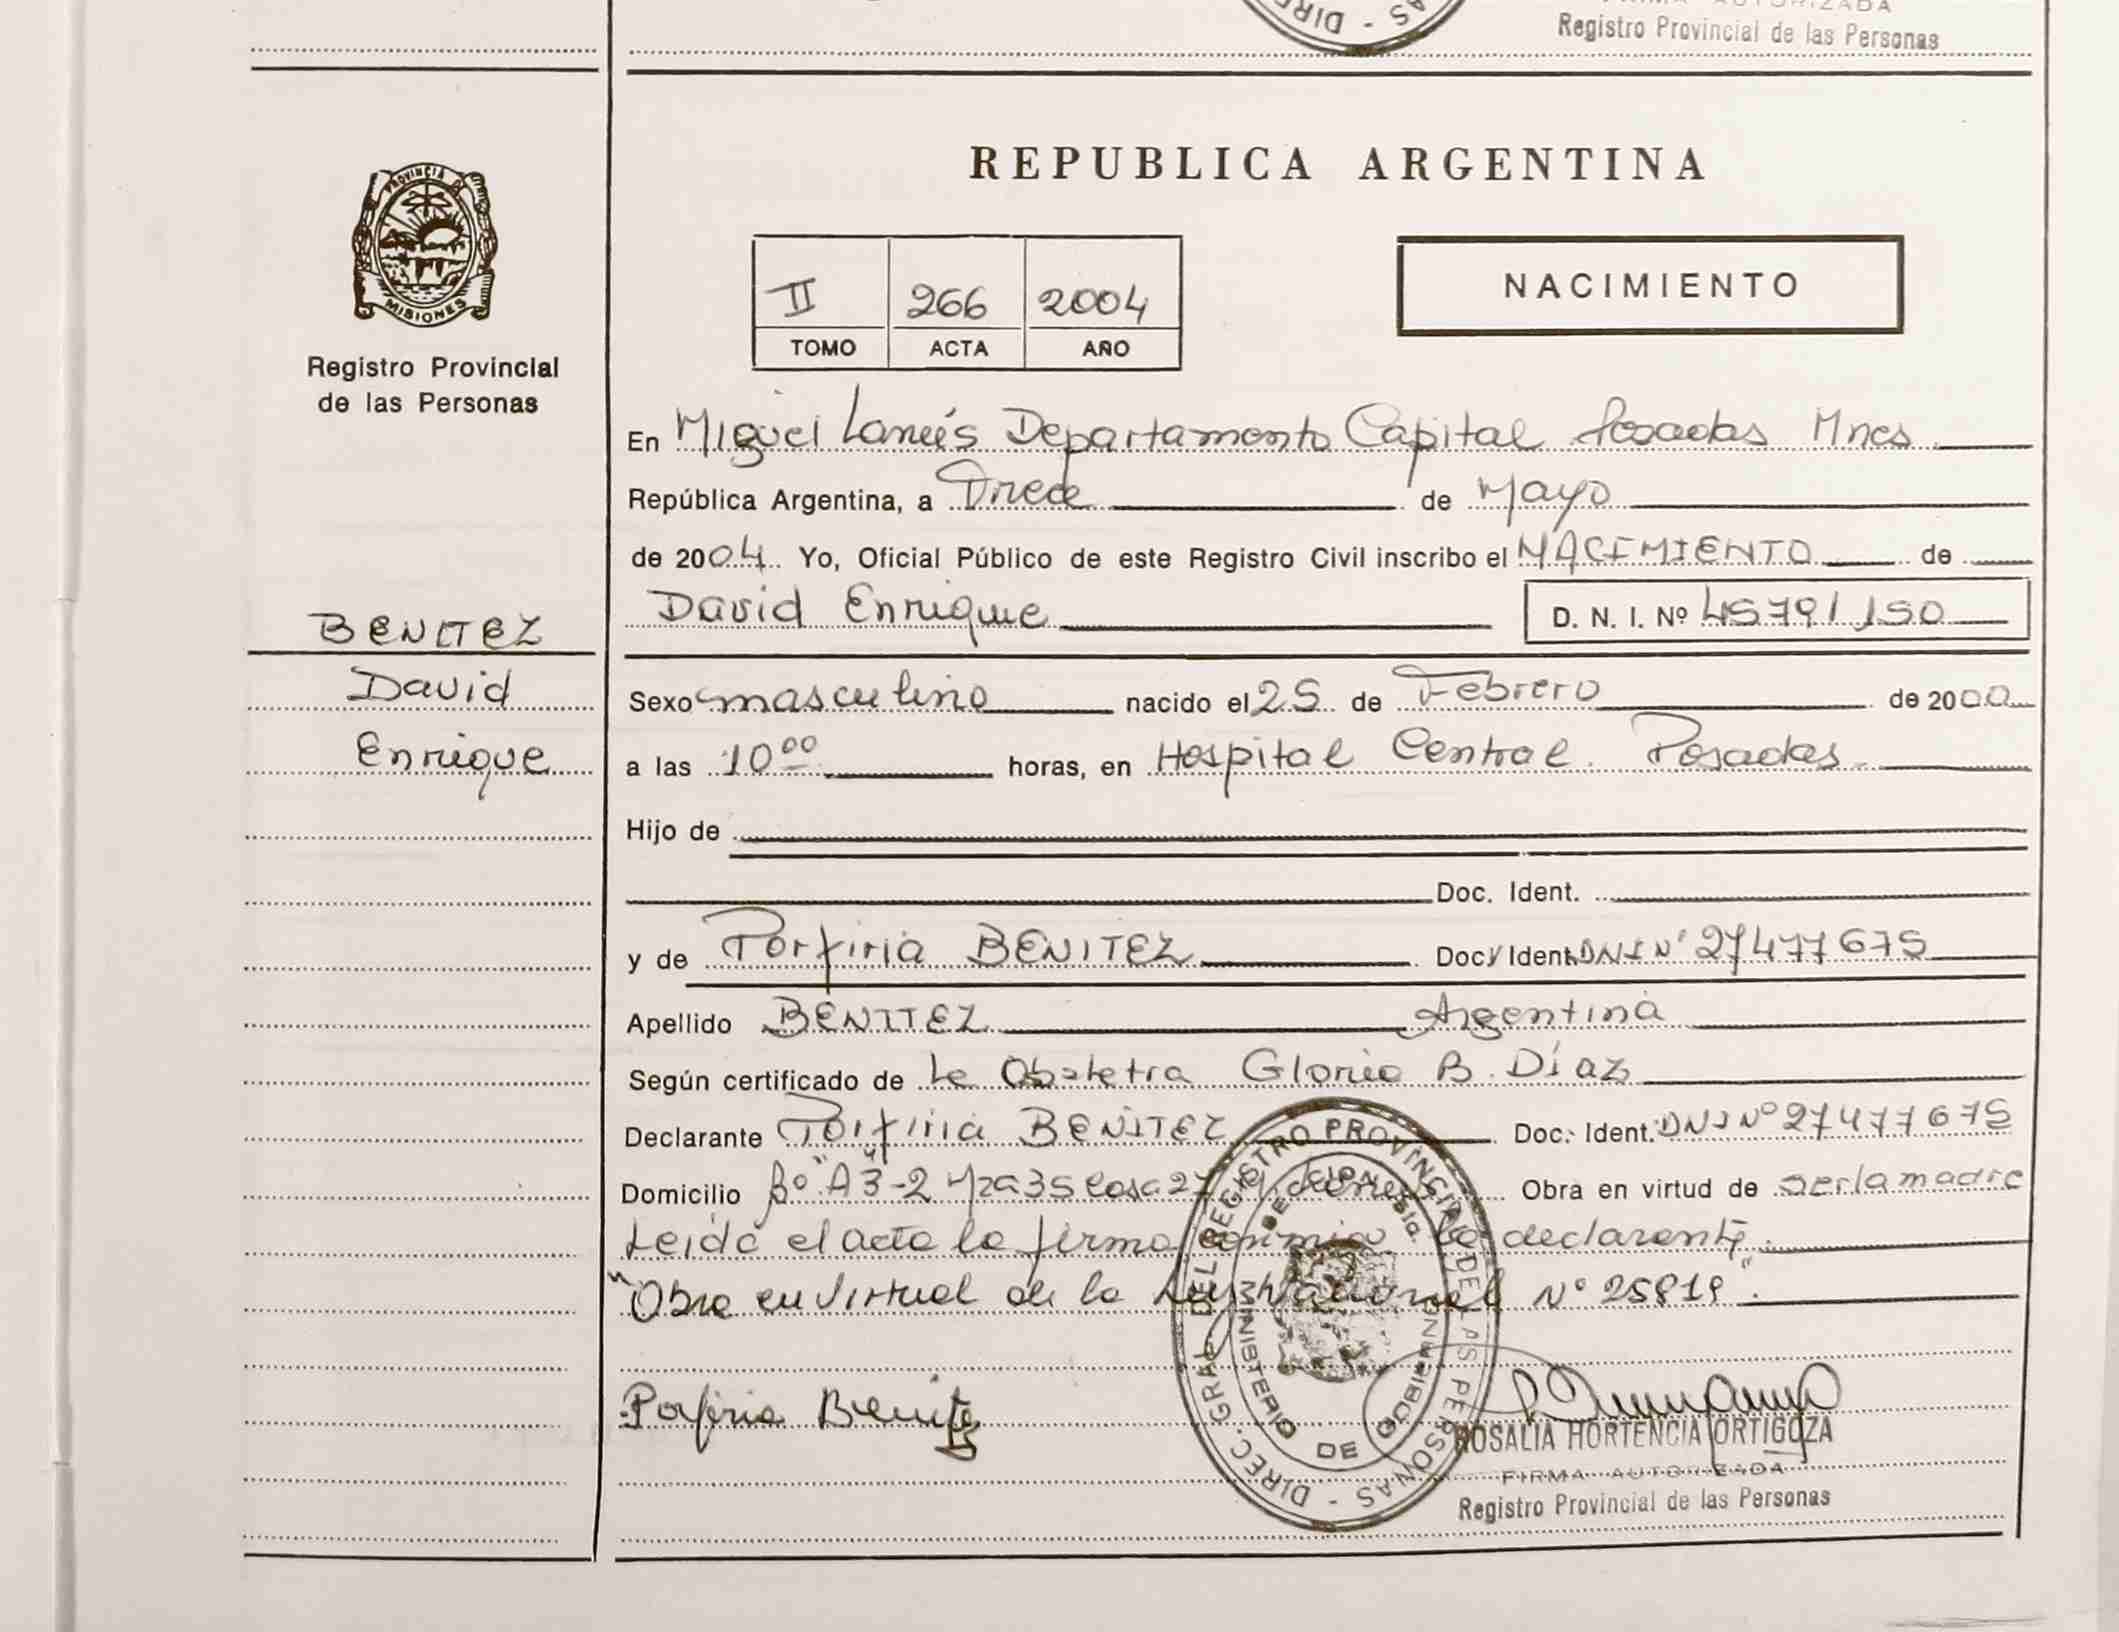 FIRMA AUTORIZADA
Registro Provincial de las Personas
DIREC - AS
PROVINCIA DE
MISIONES
Registro Provincial
de las Personas
BENITEZ
David
Enrique
REPUBLICA ARGENTINA
II 266 2004
TOMO ACTA AÑO
NACIMIENTO
En Miguel Lanús Departamento Capital Posadas Mnes
República Argentina, a Trece de Mayo
de 2004 Yo, Oficial Público de este Registro Civil inscribo el NACIMIENTO de
David Enrique D. N. I. Nº 45791150
Sexo masculino nacido el 25 de Febrero de 2000
a las 10 00 horas, en Hospital Central. Posadas
Hijo de
Doc. Ident.
y de Porfiria BENITEZ Doc. Ident. DNI Nº 27477675
Apellido BENITEZ Argentina
Según certificado de la Obstetra Gloria B. Díaz
Declarante Porfiria BENITEZ Doc. Ident. DNI Nº 27477675
Domicilio Bº "A 3-2 Mza 35 casa 27 Obra en virtud de ser la madre
Leída el acta la firma conmigo la declarante.
"Obra en virtud de la Ley Nacional Nº 25819".
Porfiria Benitez
DIREC. GRAL. DEL REGISTRO PROVINCIAL DE LAS PERSONAS
MINISTERIO DE GOBIERNO
ROSALIA HORTENCIA ORTIGOZA
FIRMA AUTORIZADA
Registro Provincial de las Personas